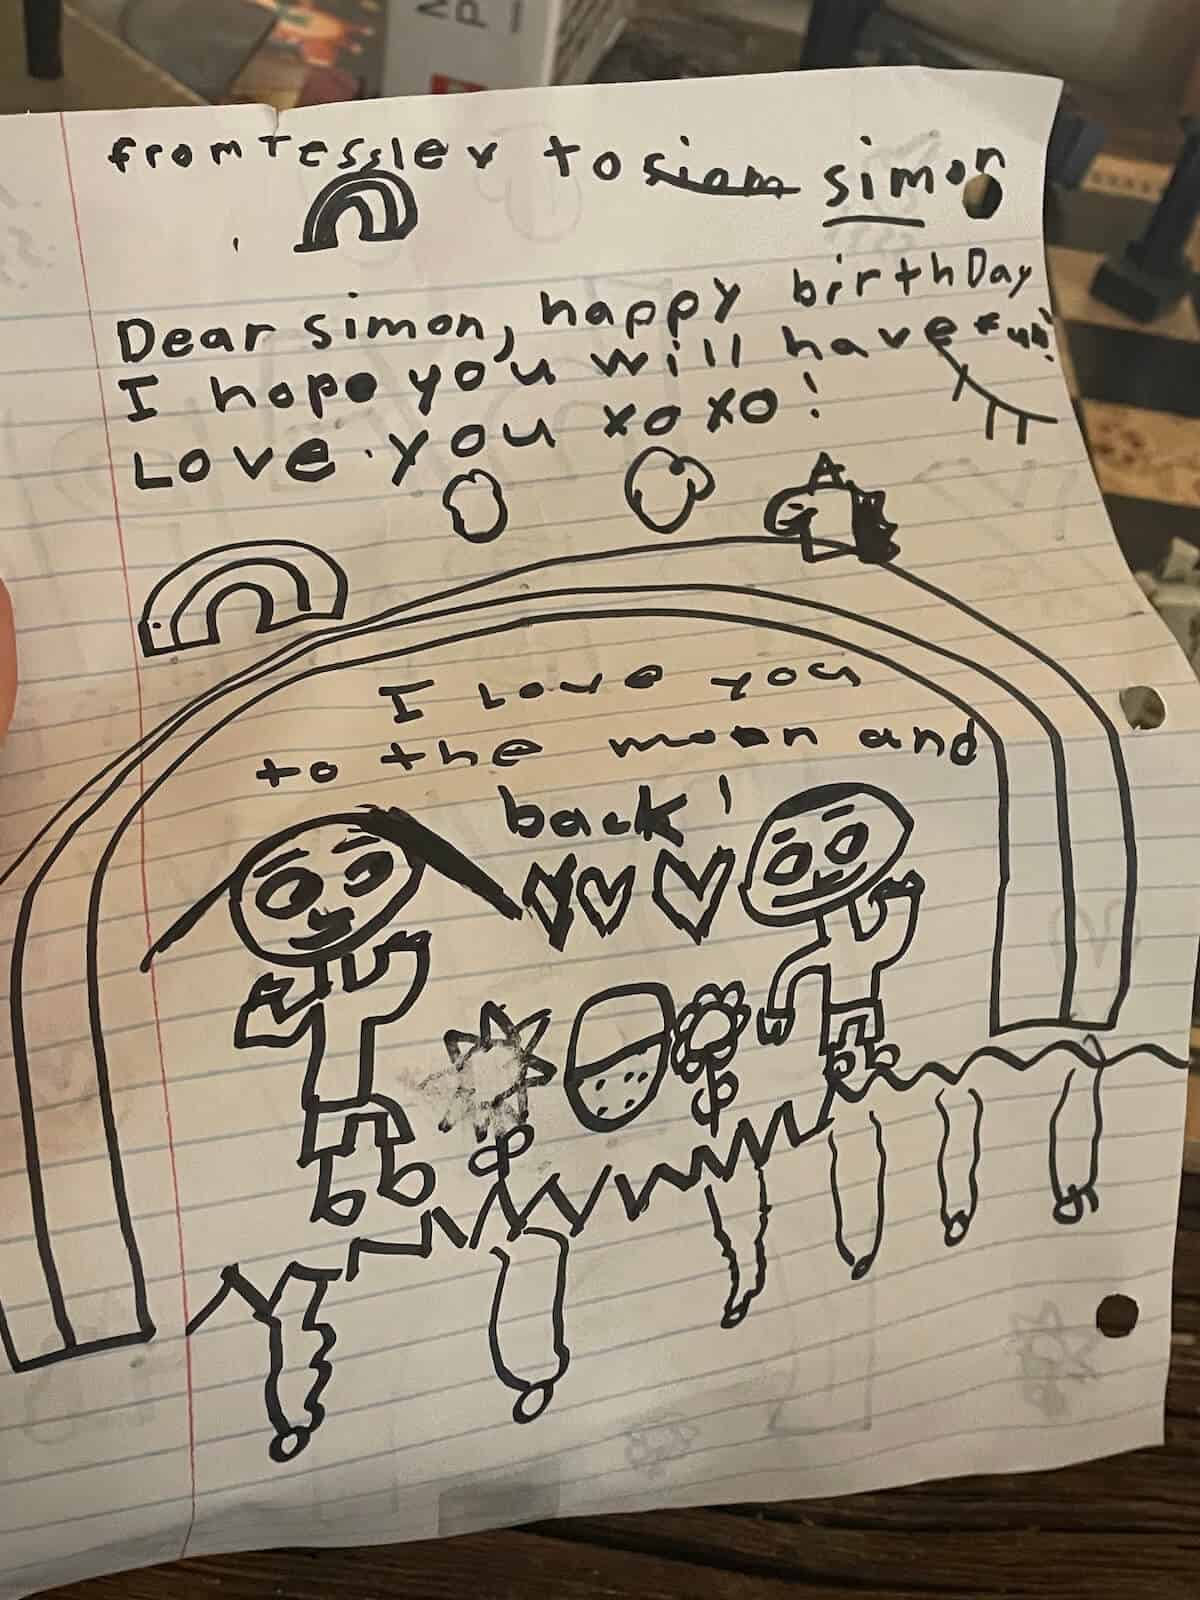 from Tessler to siam simon
Dear simon, happy birthDay
I hope you will have fun!
Love you xoxo!
I Love you
to the moon and
back!